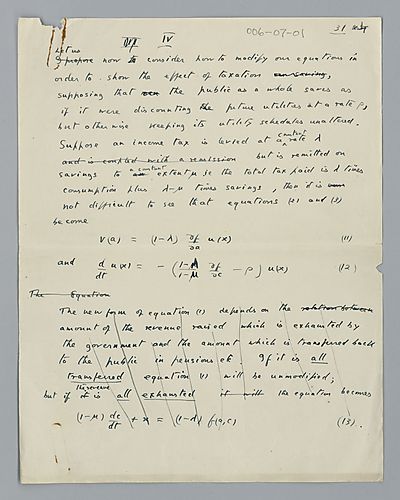 IV 006-07-01 31 July
Let us
I propose now to consider how to modify our equations in
order to show the effect of taxation on saving,
supposing that the public as a whole saves as
if it were discounting the future utilities at a rate ρ,
but otherwise keeping its utility schedules unaltered.
Suppose an income tax is levied at a constant rate λ
and is coupled with a remission but is remitted on
savings to a constant extent μ so the total tax paid is λ times
consumption plus λ-μ times savings, then it is
not difficult to see that equations (2) and (3)
become
V(a) = (1-λ) ∂f/∂a u(x) (11)
and d/dt u(x) = - (1-λ/1-μ ∂f/∂c - ρ) u(x) (12)
The Equation
The new form of equation (1) depends on the relation between
amount of the revenue raised which is exhausted by
the government and the amount which is transferred back
to the public in pensions etc. If it is all
transferred equation (1) will be unmodified;
but if the revenue is all exhausted it will the equation becomes
(1-μ) dc/dt + x = (1-λ) f(a,c) (13).